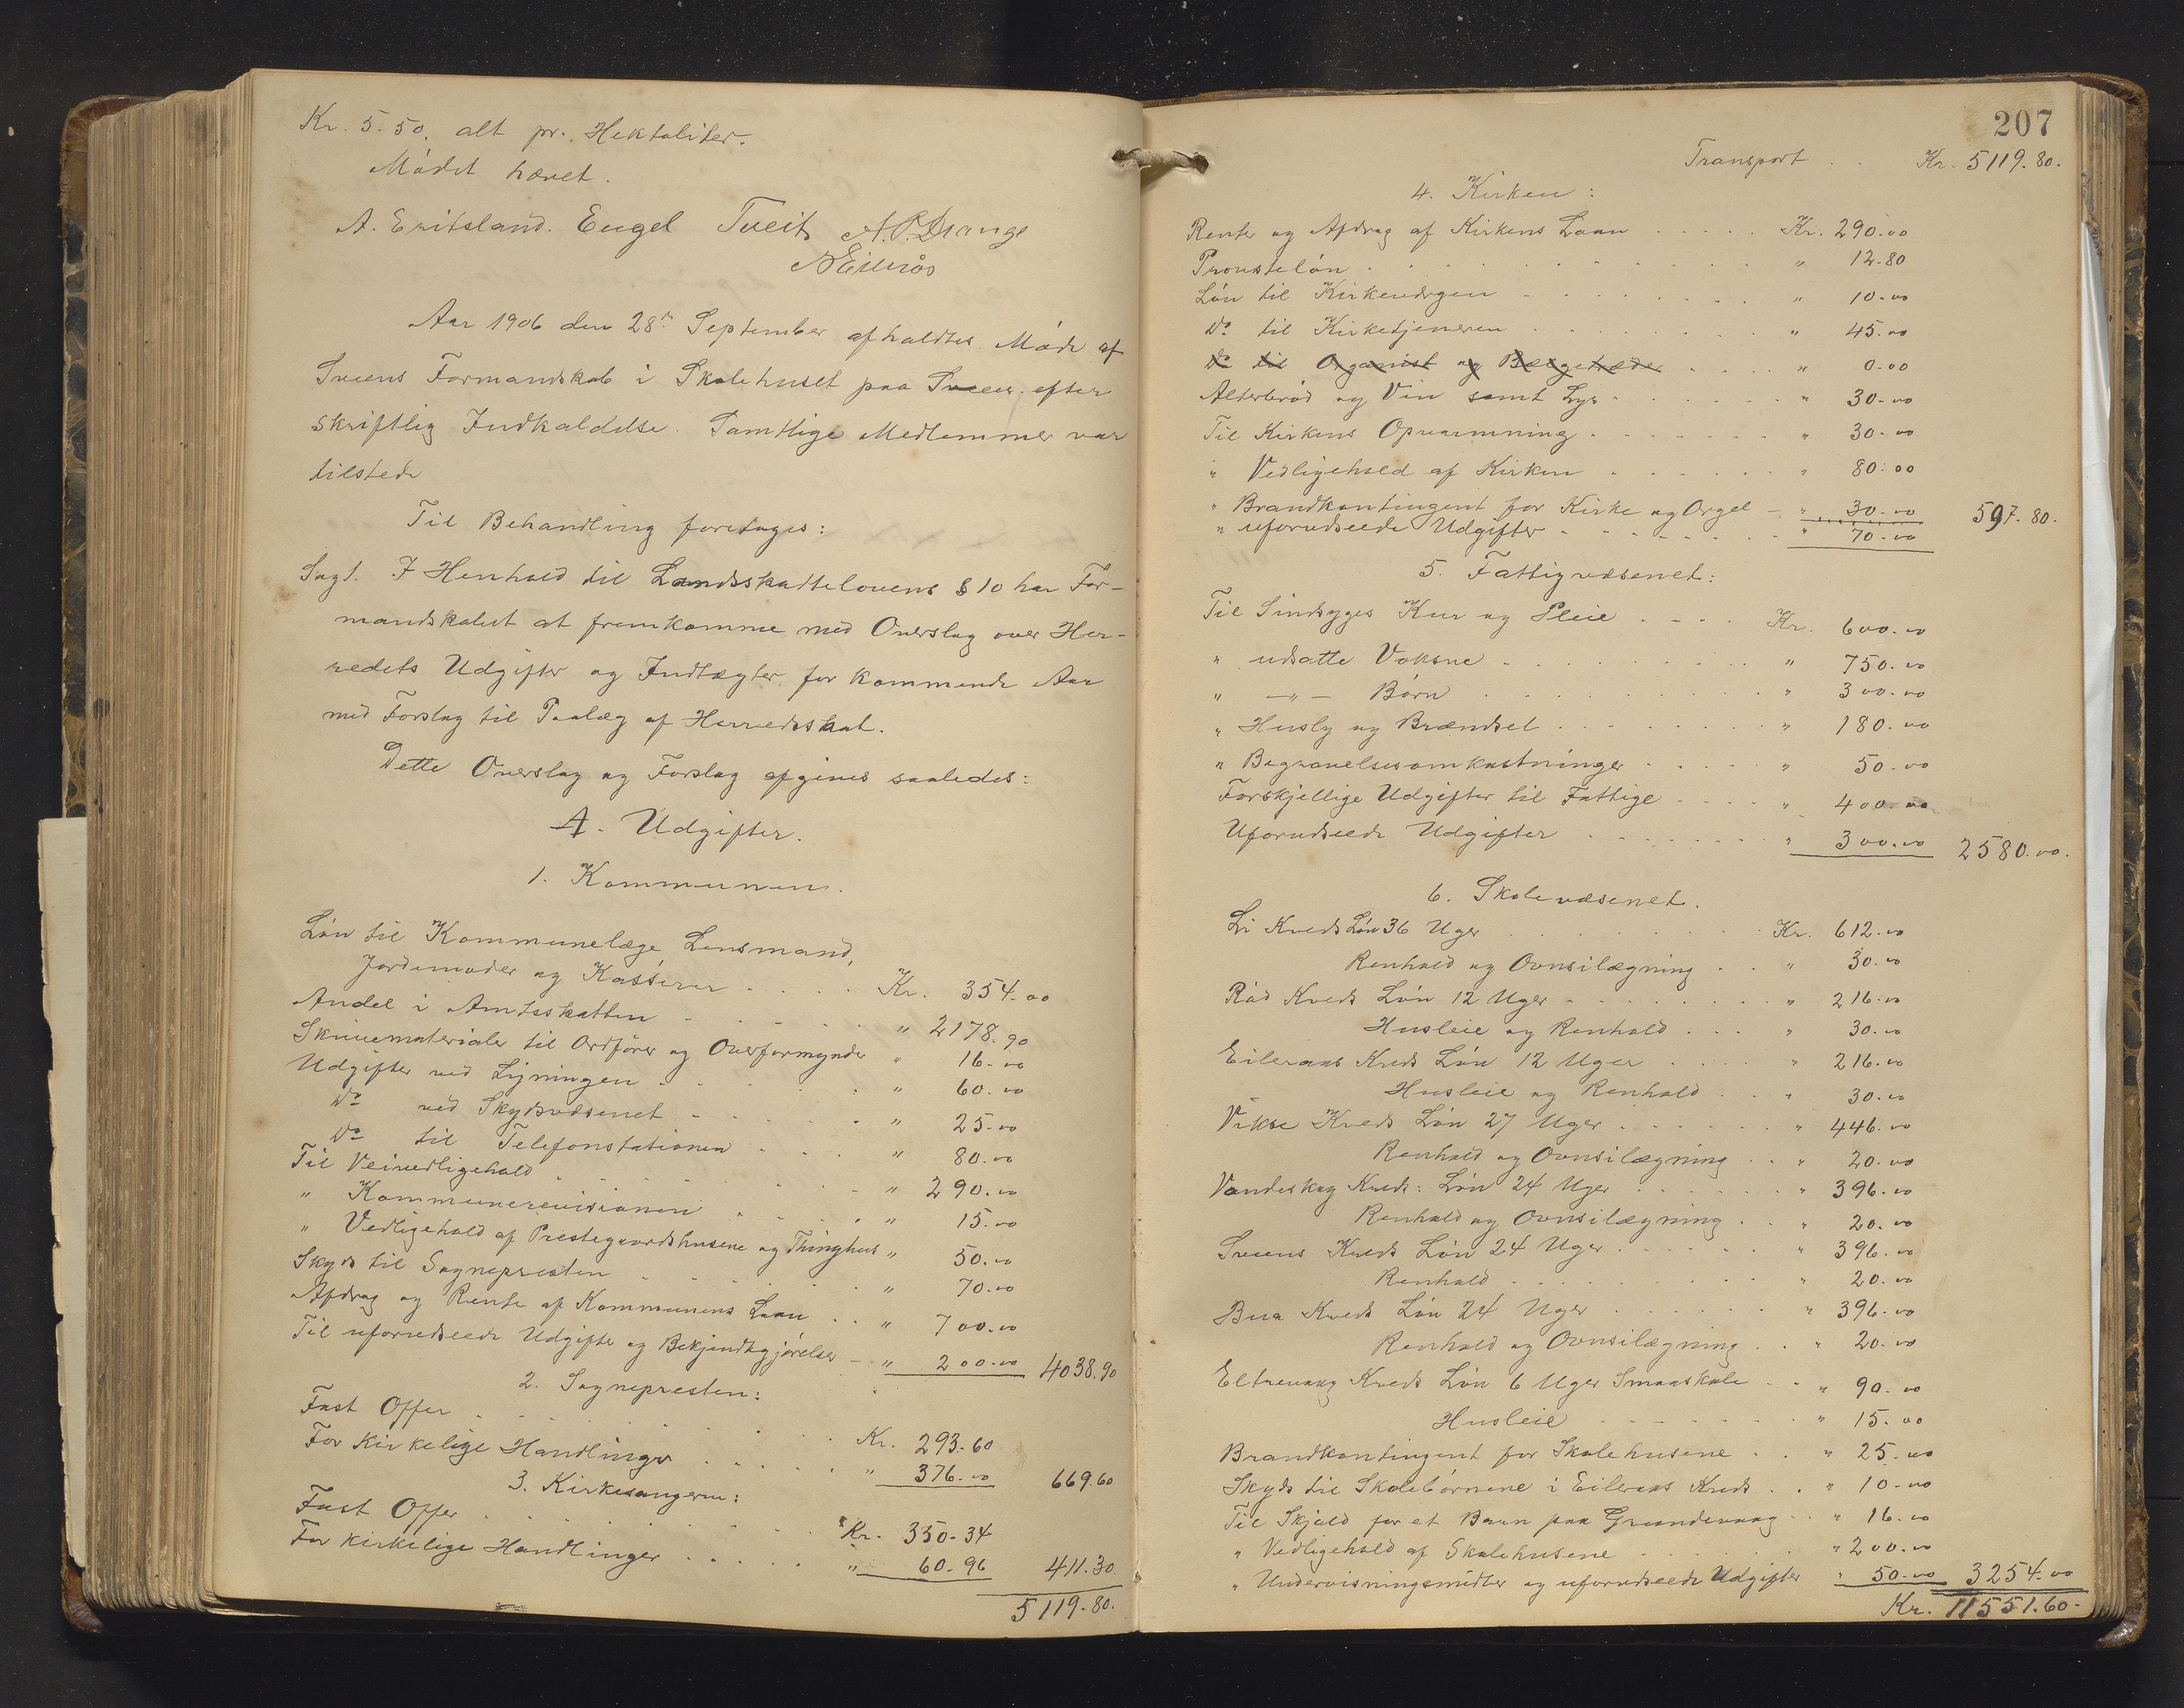 Kr. 5.50. alt pr. Hektoliter.
Mødet hævet.
A. Eritsland. Engel Tveit A. P. Drange
N Eilerås
Aar 1906 den 28de September afholdtes Møde af
Sveens Formandskab i Skolehuset paa Sveen efter
skriftlig Indkaldelse. Samtlige Medlemmer var
tilstede
Til Behandling foretages:
Sag 1. I Henhold til Landsskattelovens § 10 har For-
mandskabet at fremkomme med Overslag over Her-
redets Udgifter og Indtægter for kommende Aar
med Forslag til Paalæg af Herredsskat.
Dette Overslag og Forslag afgives saaledes:
A. Udgifter.
1. Kommunen.
Løn til Kommunelæge Lensmand,
Jordemoder og Kasserer . . . . Kr. 354.00
Andel i Amtsskatten . . . . . " 2178.90
Skrivematerialer til Ordfører og Overformynder " 16.00
Udgifter ved Ligningen . . . . " 60.00
Do ved Skydsvæsenet . . . . " 25.00
Do til Telefonstationen . . . " 80.00
Til Veivedligehold . . . . . " 290.00
" Kommunerevisionen . . . . " 15.00
" Vedligehold af Prestegaardshusene og Thinghus " 50.00
Skyds til Sognepresten . . . . " 70.00
Afdrag og Rente af Kommunens Laan . . " 700.00
Til uforudseede Udgifter og Bekjendtgjørelser - " 200.00 4038.90
2. Sognepresten:
Fast Offer . . . . . Kr. 293.60
For Kirkelige Handlinger . . . . . " 376.00 669.60
3. Kirkesangeren:
Fast Offer . . . . . Kr. 350.34
For kirkelige Handlinger . . . . . " 60.96 411.30
5119.80.
207
Transport . . Kr. 5119.80.
4. Kirken:
Rente og Afdrag af Kirkens Laan . . . . . Kr. 290.00
Prousteløn . . . . . " 12.80
Løn til Kirkeværgen . . . . . " 10.00
Do til Kirketjeneren . . . . . " 45.00
Do til Organist og Bælgetræder . . . . " 0.00
Alterbrød og Vin samt Lys . . . . . " 30.00
Til Kirkens Opvarmning . . . . . " 30.00
" Vedligehold af Kirken . . . . . " 80.00
" Brandkontingent for Kirke og Orgel - " 30.00 597.80.
" uforudseede Udgifter . . . . . " 70.00
5. Fattigvæsenet:
Til Sindsyges Kur og Pleie . . . . Kr. 600.00
" udsatte Voksne . . . . . " 750.00
" -"- Børn . . . . . " 300.00
" Husly og Brændsel . . . . . " 180.00
" Begravelsesomkostninger . . . . . " 50.00
Forskjellige Udgifter til Fattige . . . . " 400.00
Uforudseede Udgifter . . . . . " 300.00 2580.00.
6. Skolevæsenet.
Li Kreds Løn 36 Uger . . . . . Kr. 612.00
Renhold og Ovnsilægning . . " 30.00
Rød Kreds Løn 12 Uger . . . . . " 216.00
Husleie og Renhold . . . " 30.00
Eileraas Kreds Løn 12 Uger . . . . " 216.00
Husleie og Renhold . . " 30.00
Vikse Kreds Løn 27 Uger . . . . . " 446.00
Renhold og Ovnsilægning . . " 20.00
Vandeskog Kreds: Løn 24 Uger . . . . . " 396.00
Renhold og Ovnsilægning . . " 20.00
Sveens Kreds Løn 24 Uger . . . . . " 396.00
Renhold . . . . . " 20.00
Bua Kreds Løn 24 Uger . . . . . " 396.00
Renhold og Ovnsilægning . . " 20.00
Eltrevaag Kreds Løn 6 Uger Smaaskole . . " 90.00
Husleie . . . . . " 15.00
Brandkontingent for Skolehusene . . " 25.00
Skyds til Skolebørnene i Eileraas Kreds . . " 10.00
Til Skjold for et Barn paa Grundevaag . . " 16.00
" Vedligehold af Skolehusene . . . . . " 200.00
" Undervisningsmidler og uforudseede Udgifter " 50.00 3254.00
Kr. 11551.60.